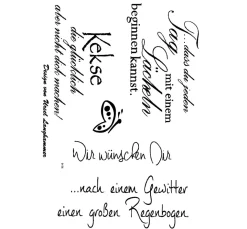 ...dass du jeden
Tag
mit einem
Lächeln
beginnen kannst.
Kekse
die glücklich
aber nicht dick machen!
Design von Heidi Langhammer
Wir wünschen Dir
...nach einem Gewitter
einen großen Regenbogen